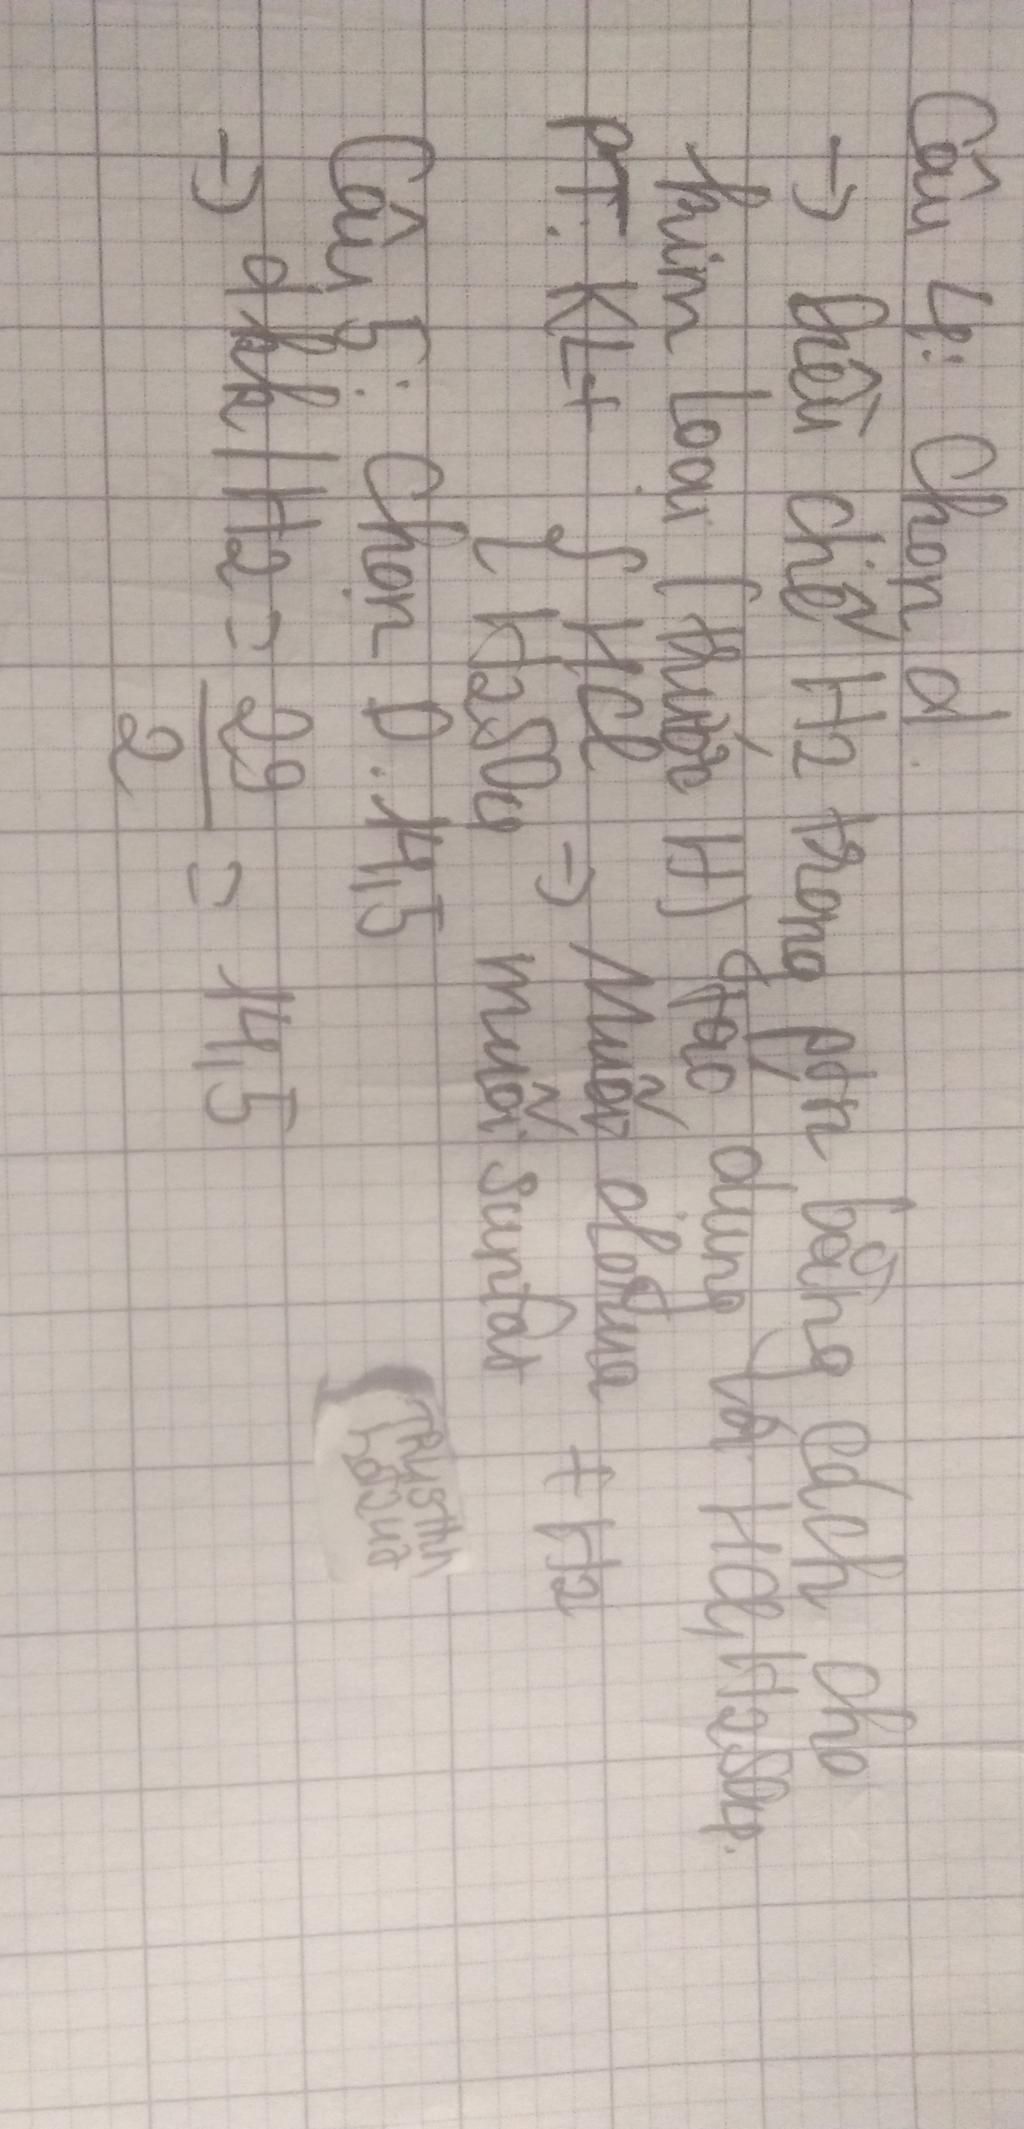 Câu 4: Chọn d.
→ Điều chiế H2 trong ptn bằng cách cho
kim loại (trước H) tác dụng với HCl, H2SO4.
PT: KL + { HCl → Muối clorua + H2
{ H2SO4 muối sunfat
Câu 5: Chọn D. 14,5
→ dkk/H2 = 29/2 = 14,5